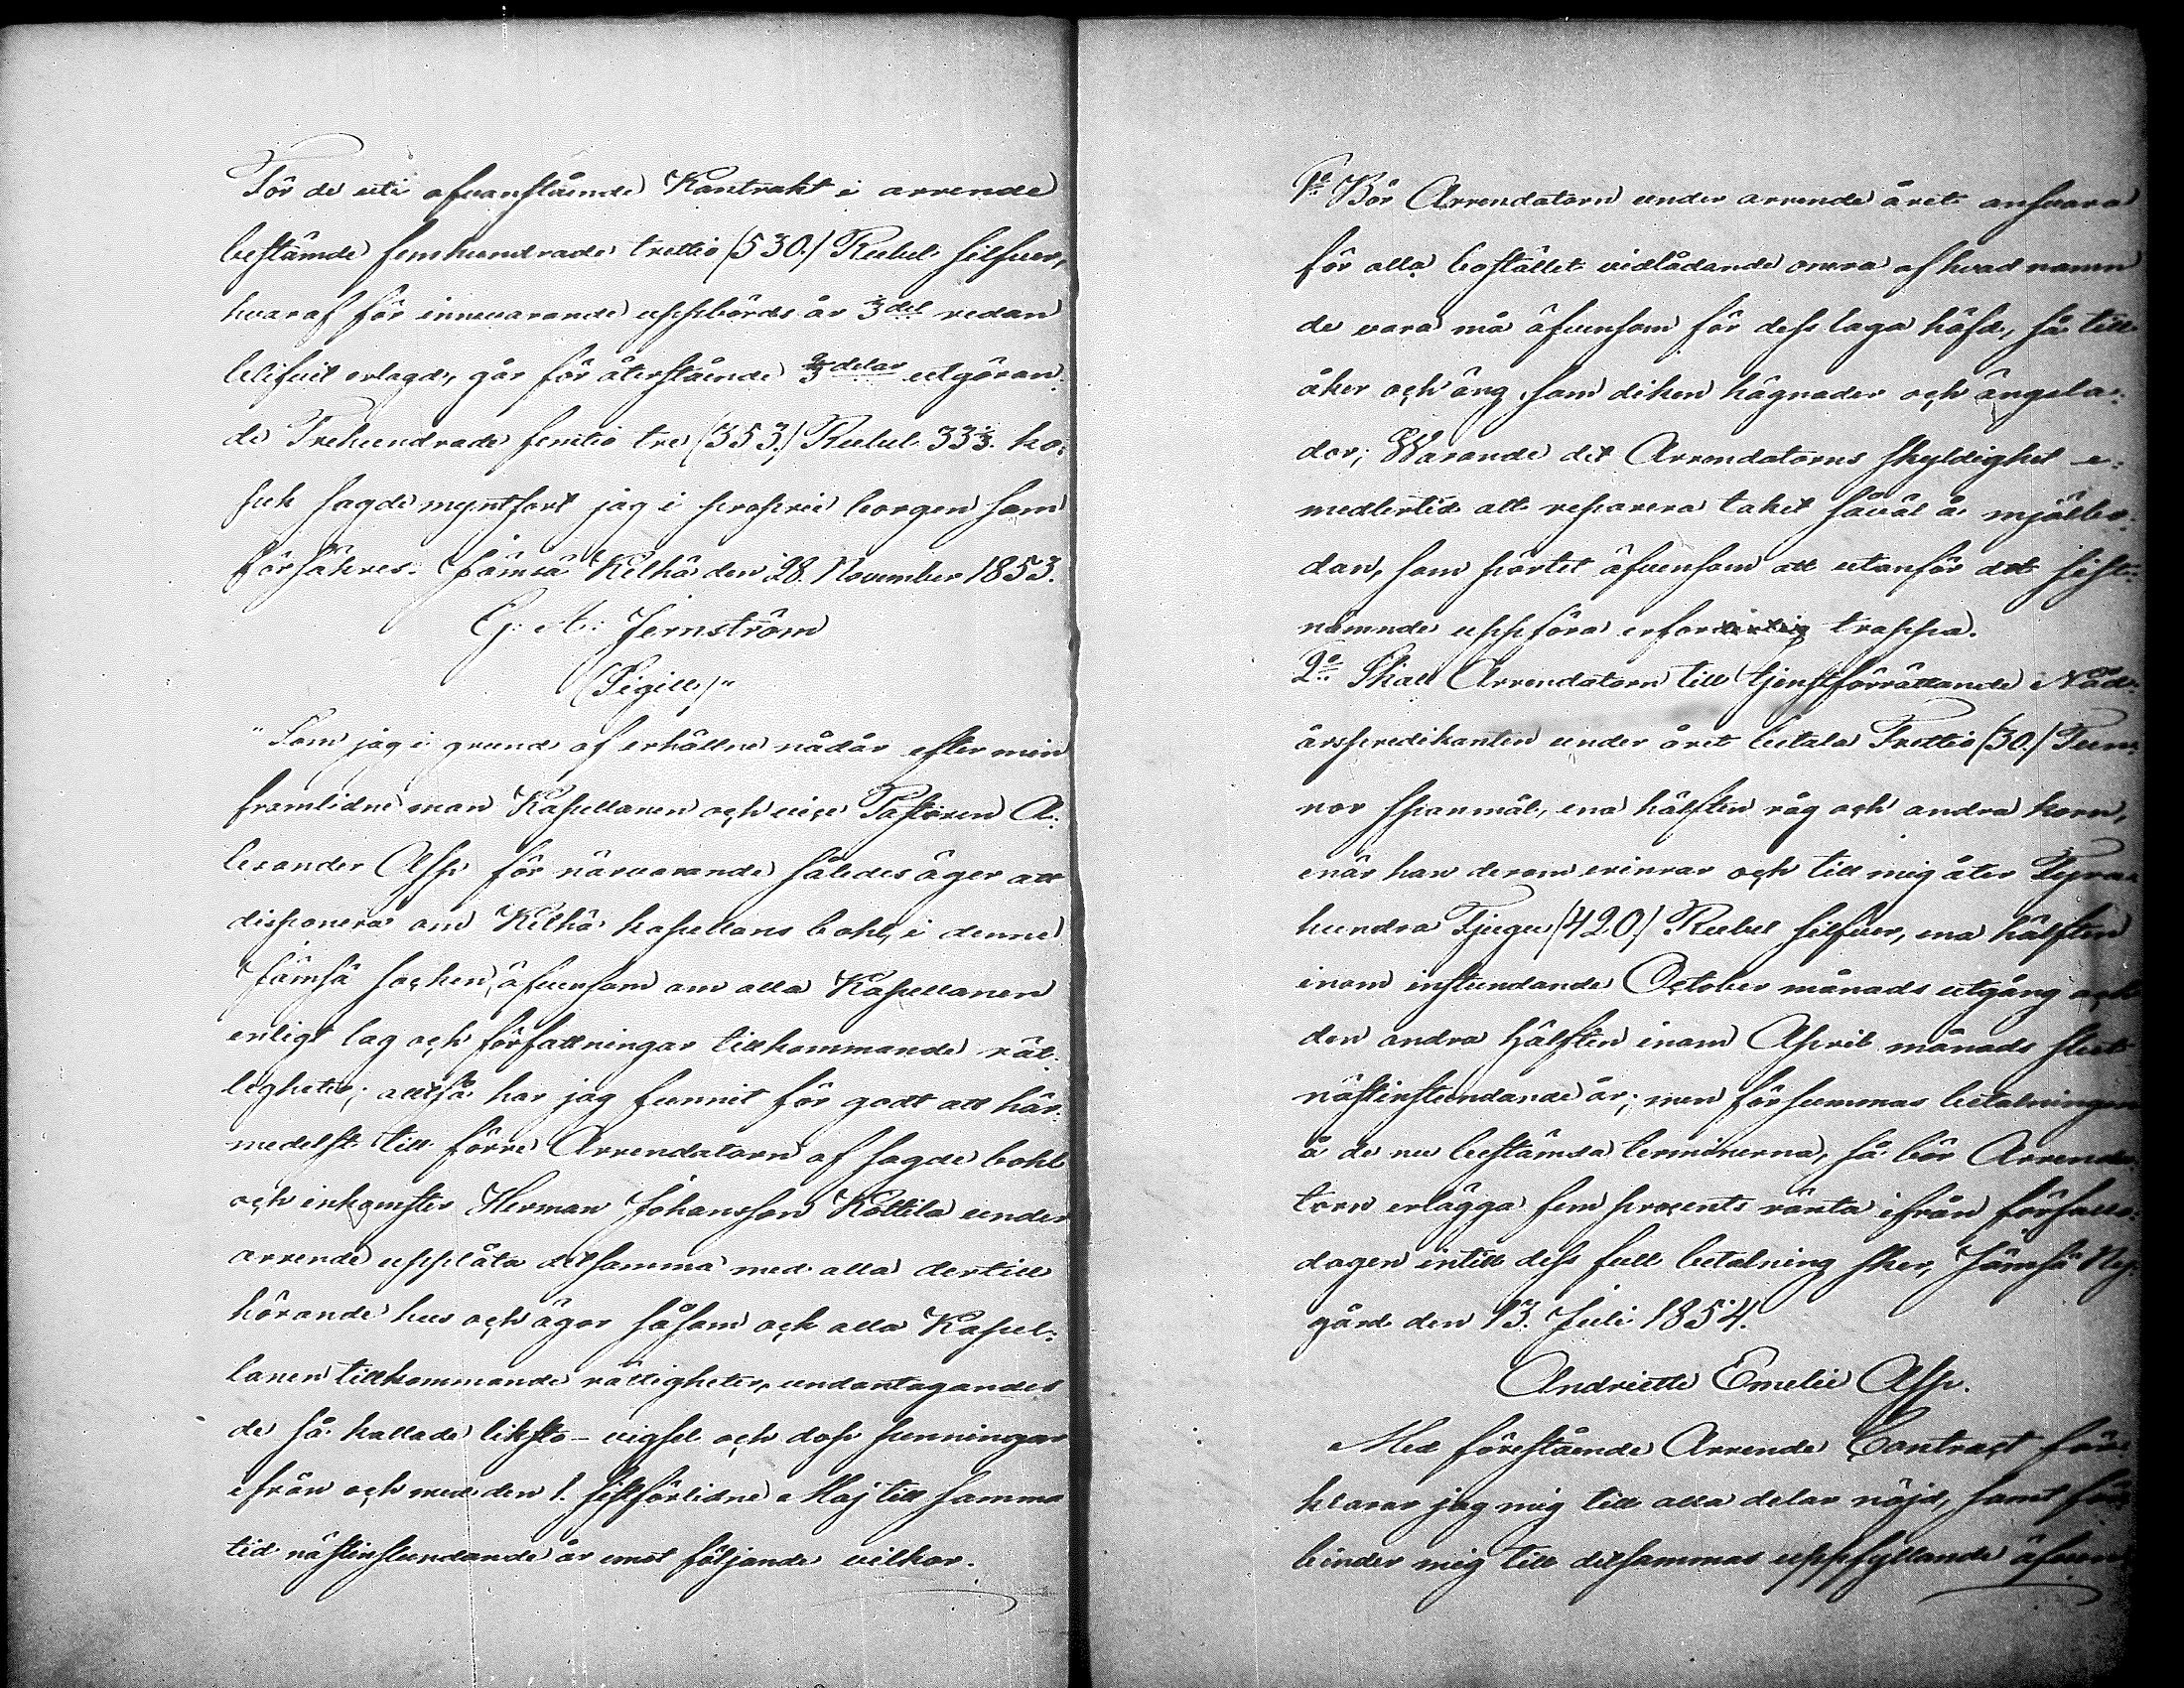 För de uti ofvanstående Kontrakt i arrende
bestämde femhundrade trettio (530.) Rubel silfver,
hvaraf för innevarande uppbörds år 1/3 del redan
blifvit erlagd, går för återstående 2/3 delar utgöran-
de Trehundrade femtio tre (353.) Rubel 33 1/3. ko-
pek sagde myntsort jag i proprie borgen som
försäkres. Jämsä Kelhä den 28. November 1853.
G: A: Jernström
(Sigill)"
"Som jag i grund af erhållne nådår efter min
framlidne man Kapellanen och vice Pastoren A-
lexander Asp för närvarande således äger att
disponera om Kelhä kapellans bohl, i denne
Jämsä socken, äfvensom om alla Kapellanen
enligt lag och författningar tillkommande rät-
tigheter; alltså har jag funnit för godt att här-
medelst till förre Arrendatorn af sagde bohl
och inkomster Herman Johansson Kottila under
arrende upplåta detsamma med alla dertill
hörande hus och ägor såsom och alla Kapel-
lanen tillkommande rättigheter, undantagandes
de så kallade liksto- vigsel och dop penningar
ifrån och med den 1. sistförlidne Maj till samma
tid nästinstundande år emot följande vilkor.
1o Bör Arrendatorn under arrende året ansvara
för alla bostället vidlådande onera af hvad namn
de vara må äfvensom för dess laga häfd, så till
åker och äng som diken hägnader och ängsla-
dor; Warande det Arrendatorns skyldighet e-
medlertid att reparera taket såväl å mjölbo-
dan, som pörtet äfvensom att utanför det sist-
nämnde uppföra erforderlig trappa.
2o Skall Arrendatorn till tjenstförrättande Nåd-
årspredikanten under året betala Trettio (30.) Tun-
nor spanmål, ena hälften råg och andra korn,
enär han derom erinrar och till mig åter Fyra-
hundra Tjugu (420.) Rubel silfver, ena hälften
inom instundande October månads utgång och
den andra hälften inom April månads slut
nästinstundande år; men försummas betalningen
å de nu bestämda terminerna, så bör Arrenda-
torn erlägga fem procents ränta ifrån förfallo-
dagen intill dess full betalning sker, Jämsä Ny-
gård den 13. Juli 1854.
Andriette Emelie Asp.
Med förestående Arrende Contract för-
klarar jag mig till alla delar nöjd, samt för-
binder mig till detsammas uppfyllande äfven